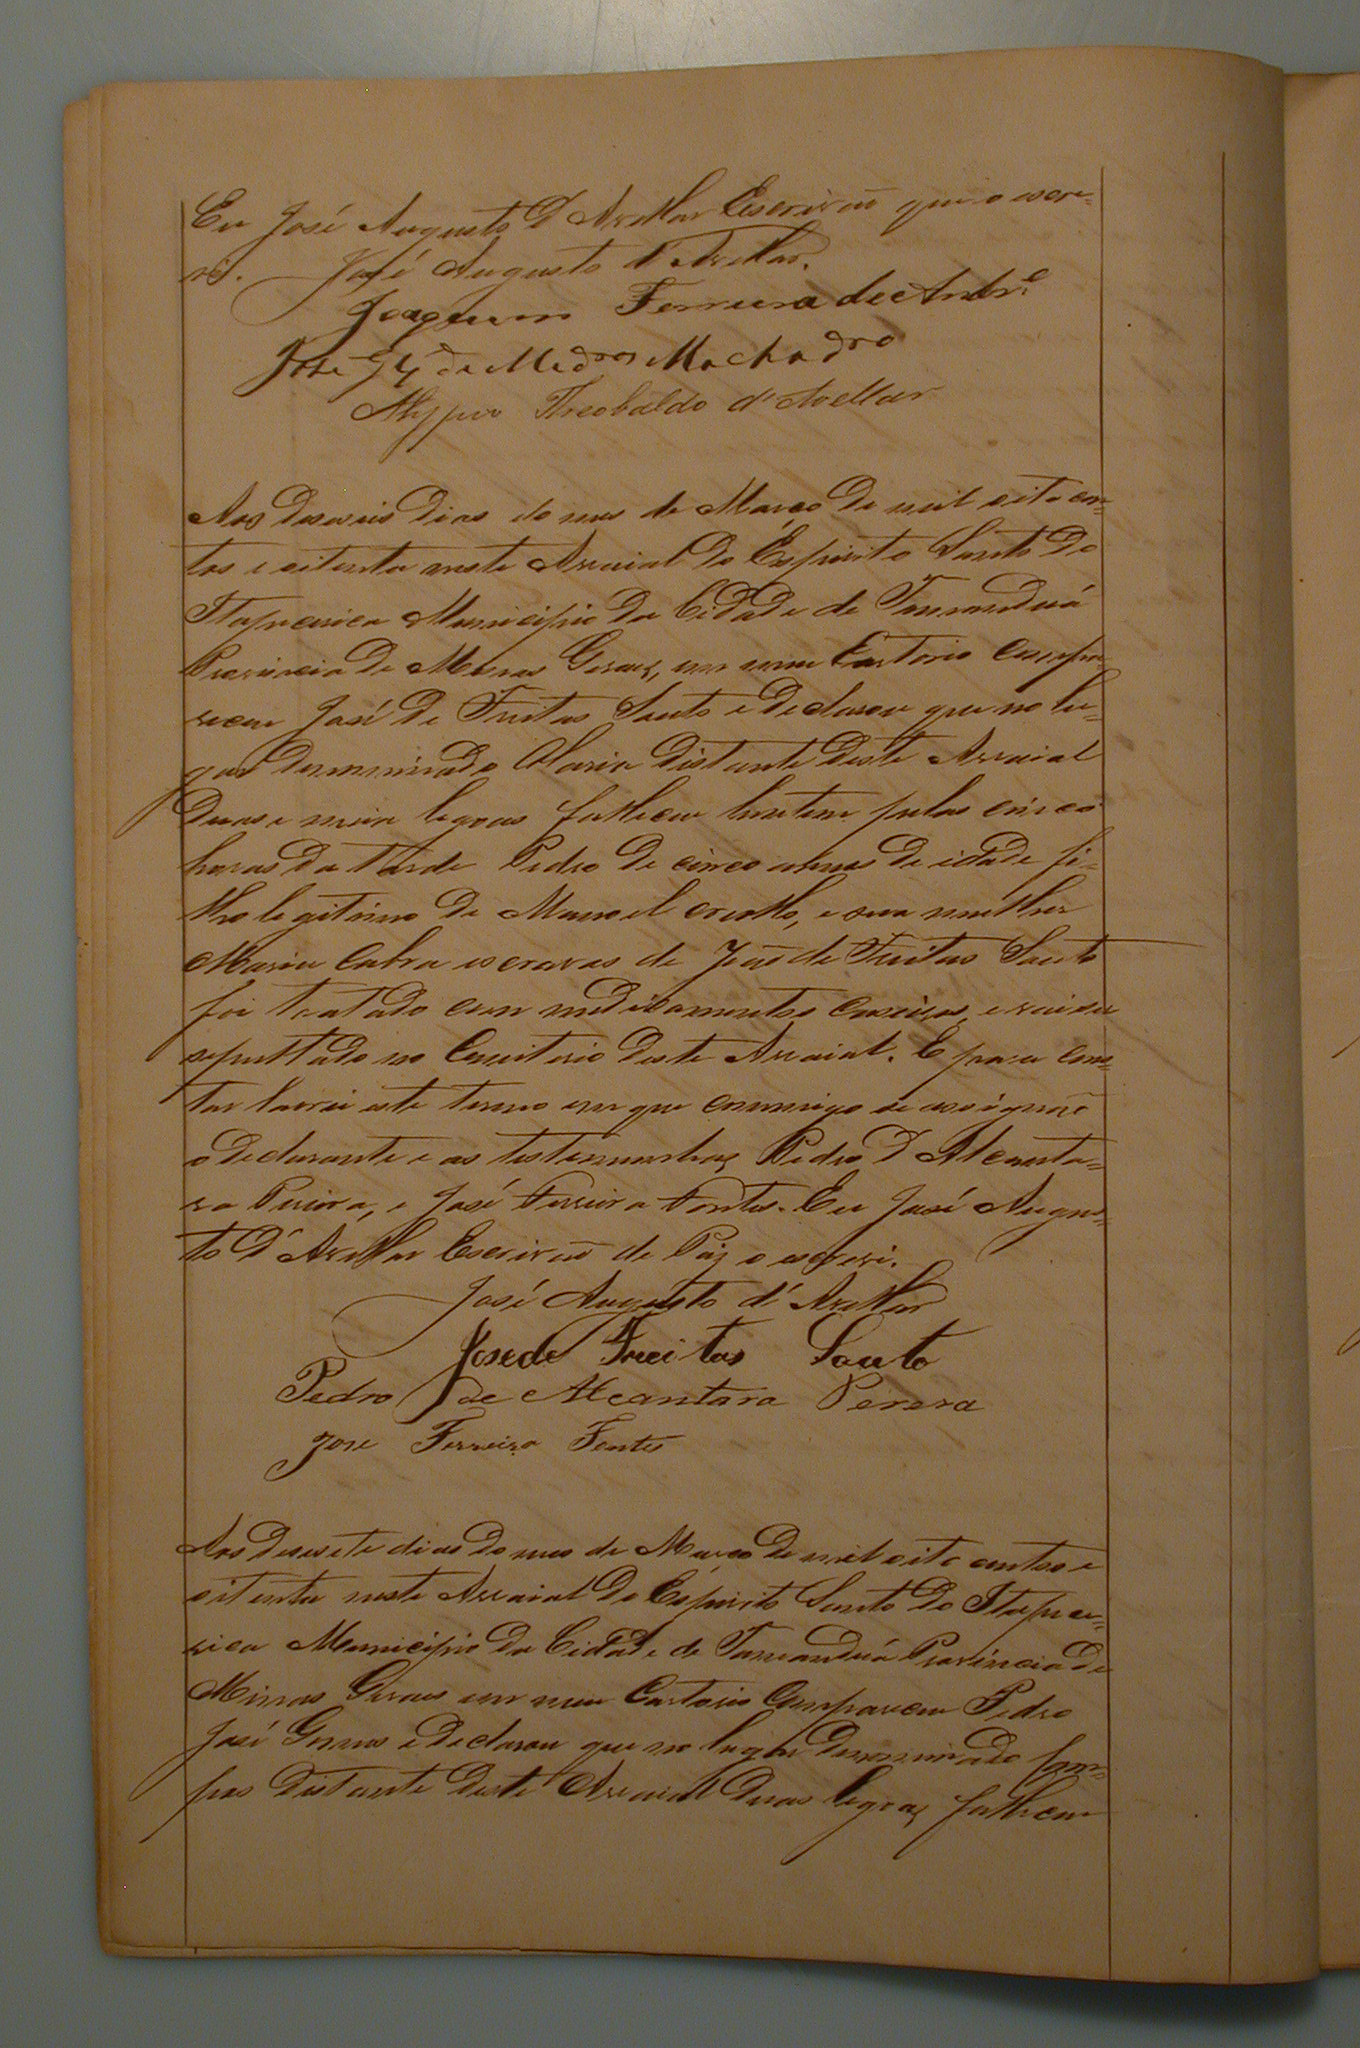 Eu José Augusto D'Avellar Escrivaõ que o escre-
vi. José Augusto d'Avellar.
Joaquim Ferreira de Andr.e
José de Medros Machadro
Theobaldo d'Avellar
Aos deseseis dias do mes de Março de mil oito cen-
tos e oitenta neste Arraial do Espirito Santo do
Itapecerica Municipio da Cidade de Tamanduá
Provincia de Minas Geraes, em meu Cartorio Compa-
receu José de Freitas Souto e declarou que no lu-
gar denominado Olaria distante deste Arraial
duas e meia legoas falleceu hontem pelas cinco
horas da tarde Pedro de cinco annos de idade fi-
lho legitimo de Manoel criollo, e sua mulher
Maria Cabra escravos de João de Freitas Souto
foi tratado com medicamentos caseiros, e vai ser
sepultado no Cemiterio deste Arraial. E para cons-
tar lavrei este termo em que commigo se assignaõ
o declarante e as testemunhas Pedro D'Alcanta-
ra Pereira, e José Ferreira Fontes. Eu José Augus-
to D'Avellar Escrivaõ de Paz o escrevi.
José Augusto d'Avellar
Jose de Freitas Souto
Pedro de Alcantara Perera
Jose Ferreira Fontes
Aos desesete dias do mes de Março de mil oito centos e
oitenta neste Arraial do Espirito Santo do Itapece-
rica Municipio da Cidade de Tamanduá Provincia de
Minas Geraes em meu Cartorio Compareceu Pedro
José Gomes e declarou que no lugar denominado
distante deste Arraial duas legoas falleceu